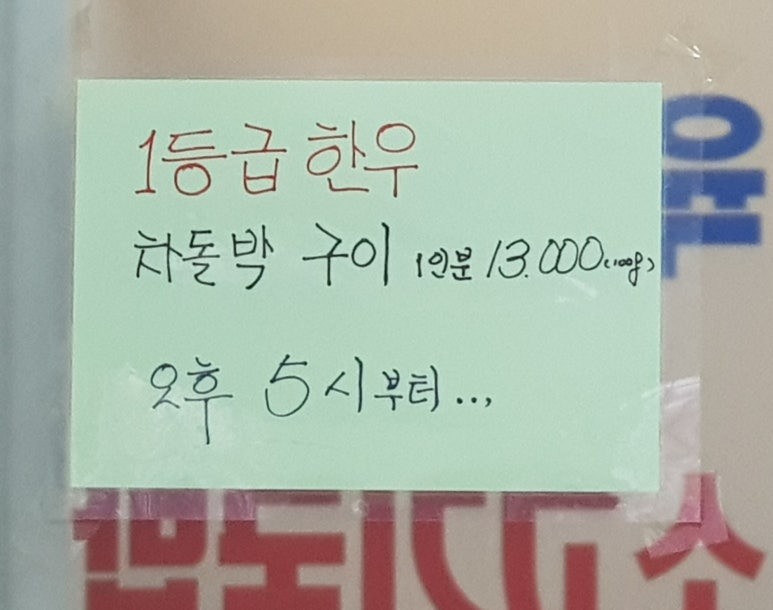 1등급 한우
차돌박 구이 1인분 13.000(100g)
오후 5시부터...